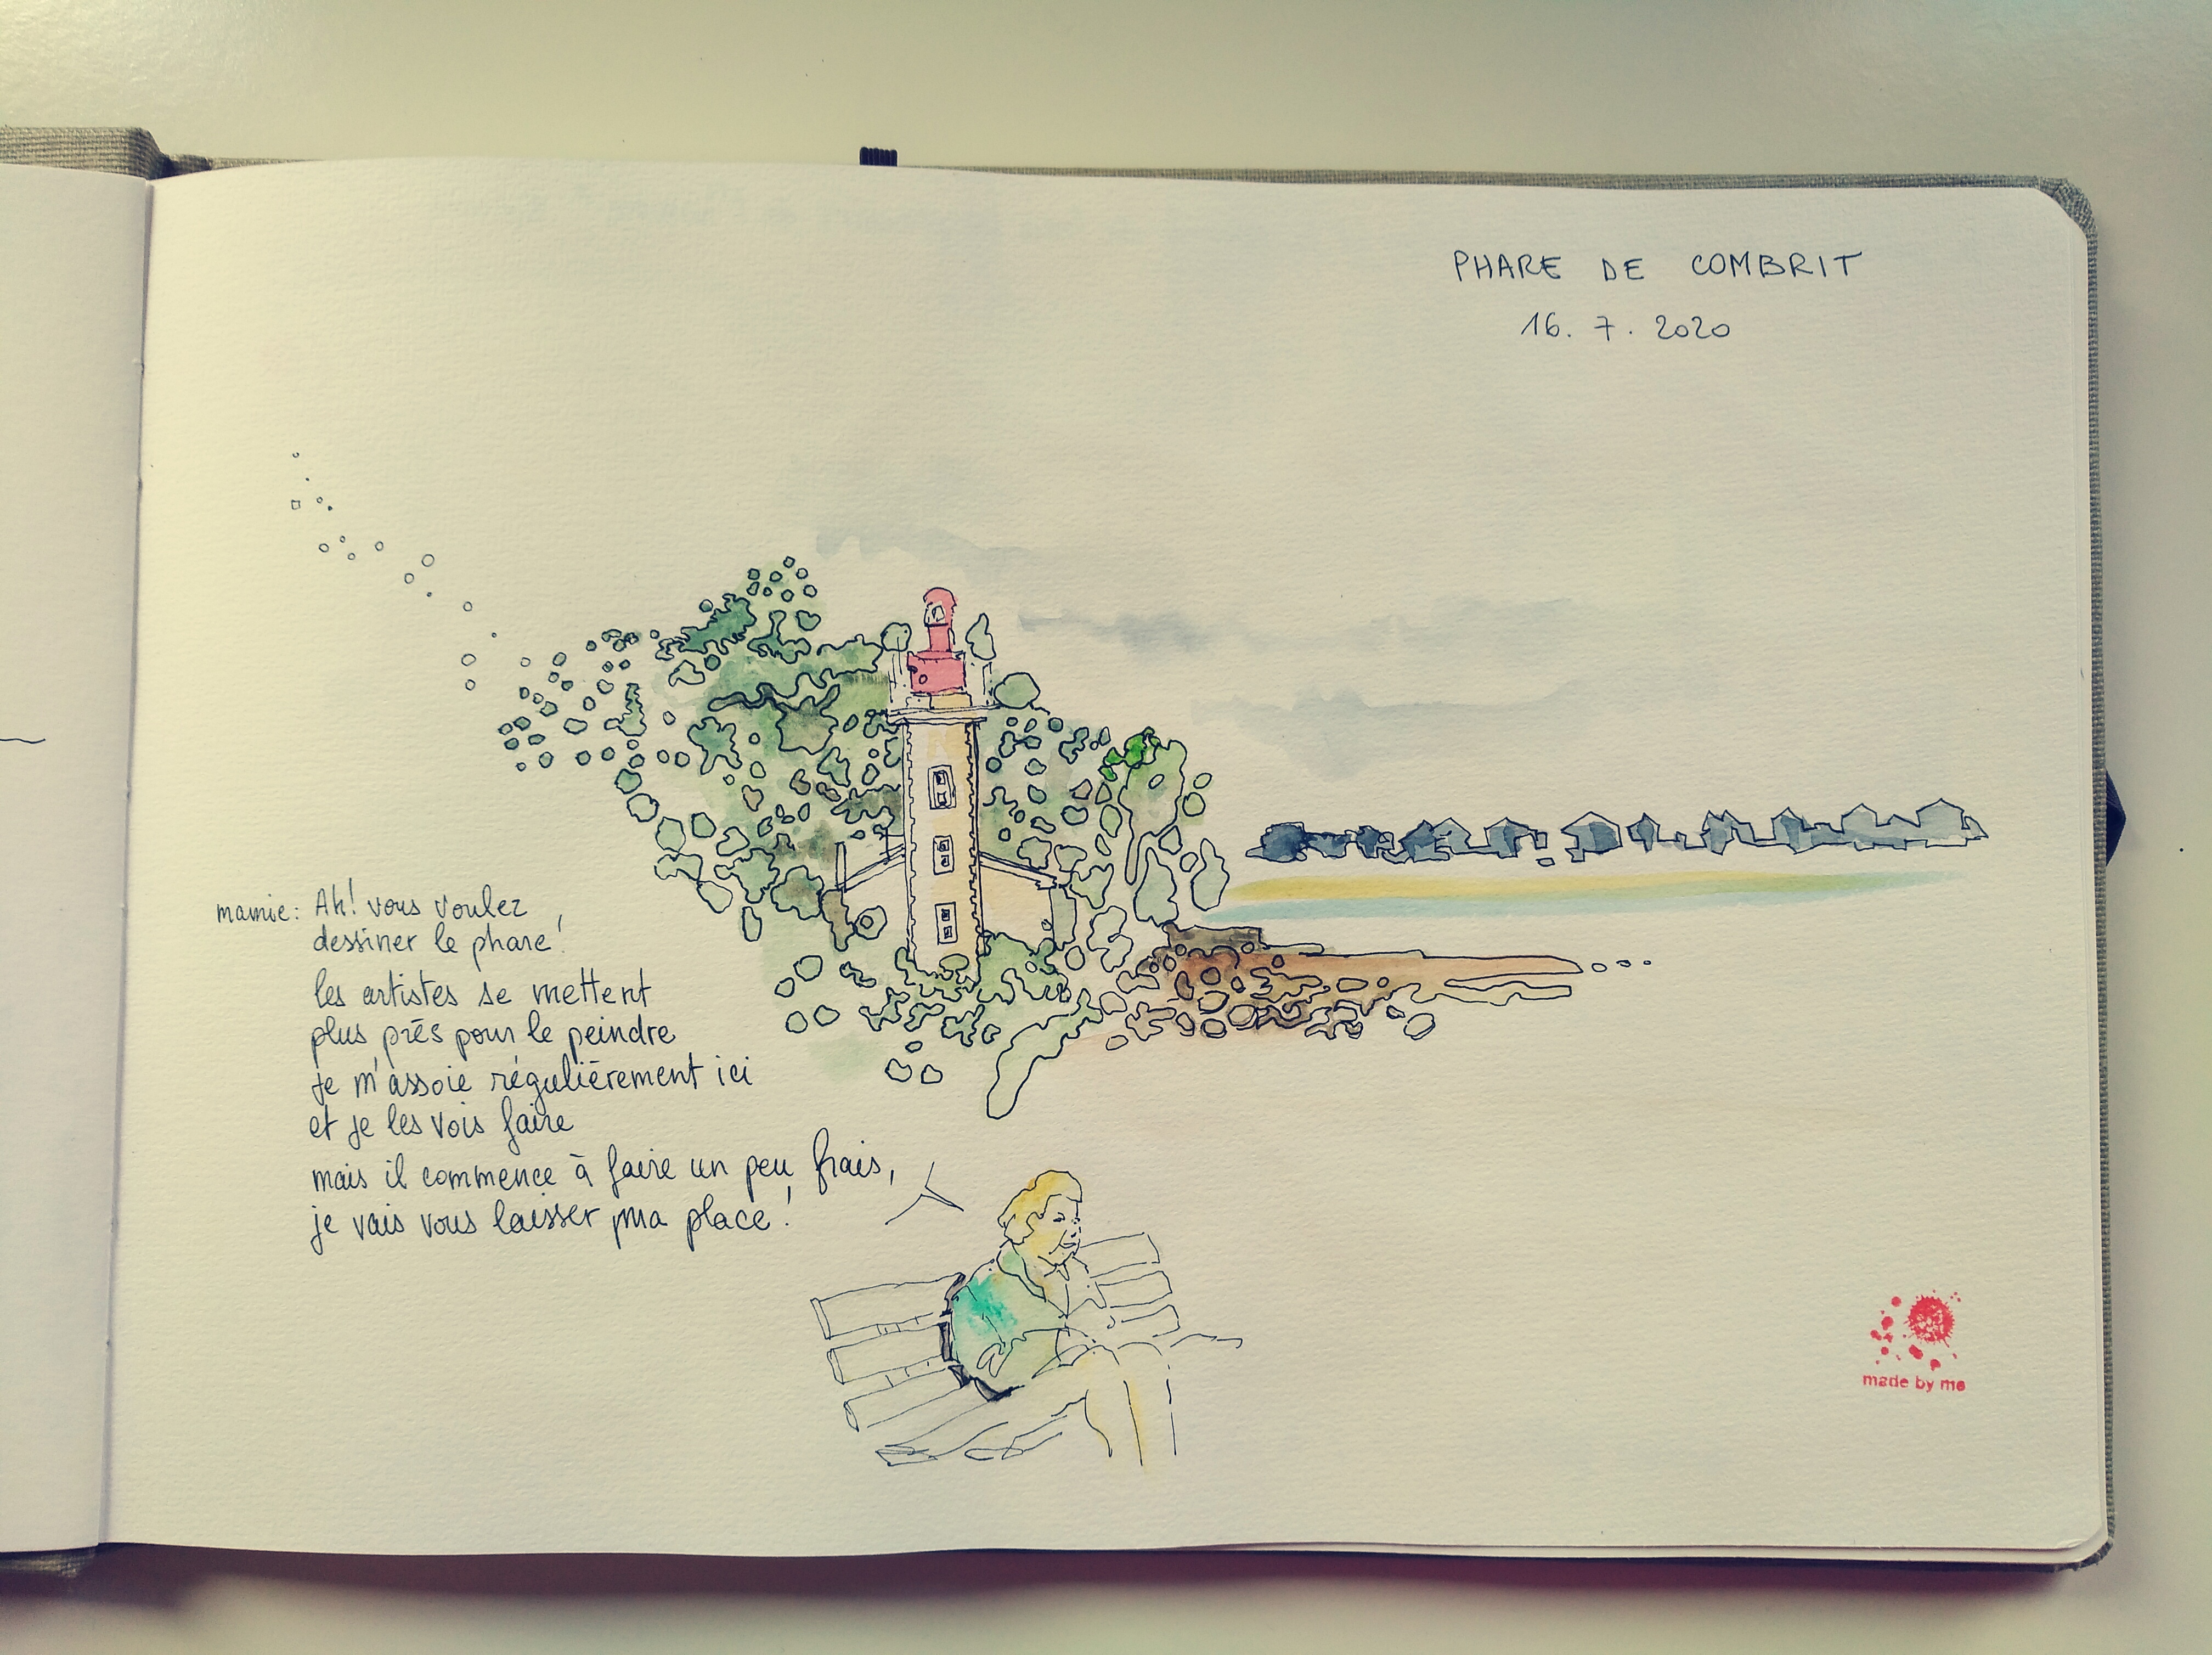 PHARE DE COMBRIT
16. 7. 2020
mamie: Ah! vous voulez
dessiner le phare!
les artistes se mettent
plus près pour le peindre
Je m'assoie régulièrement ici
et je les vois faire
mais il commence à faire un peu frais,
je vais vous laisser ma place!
made by me